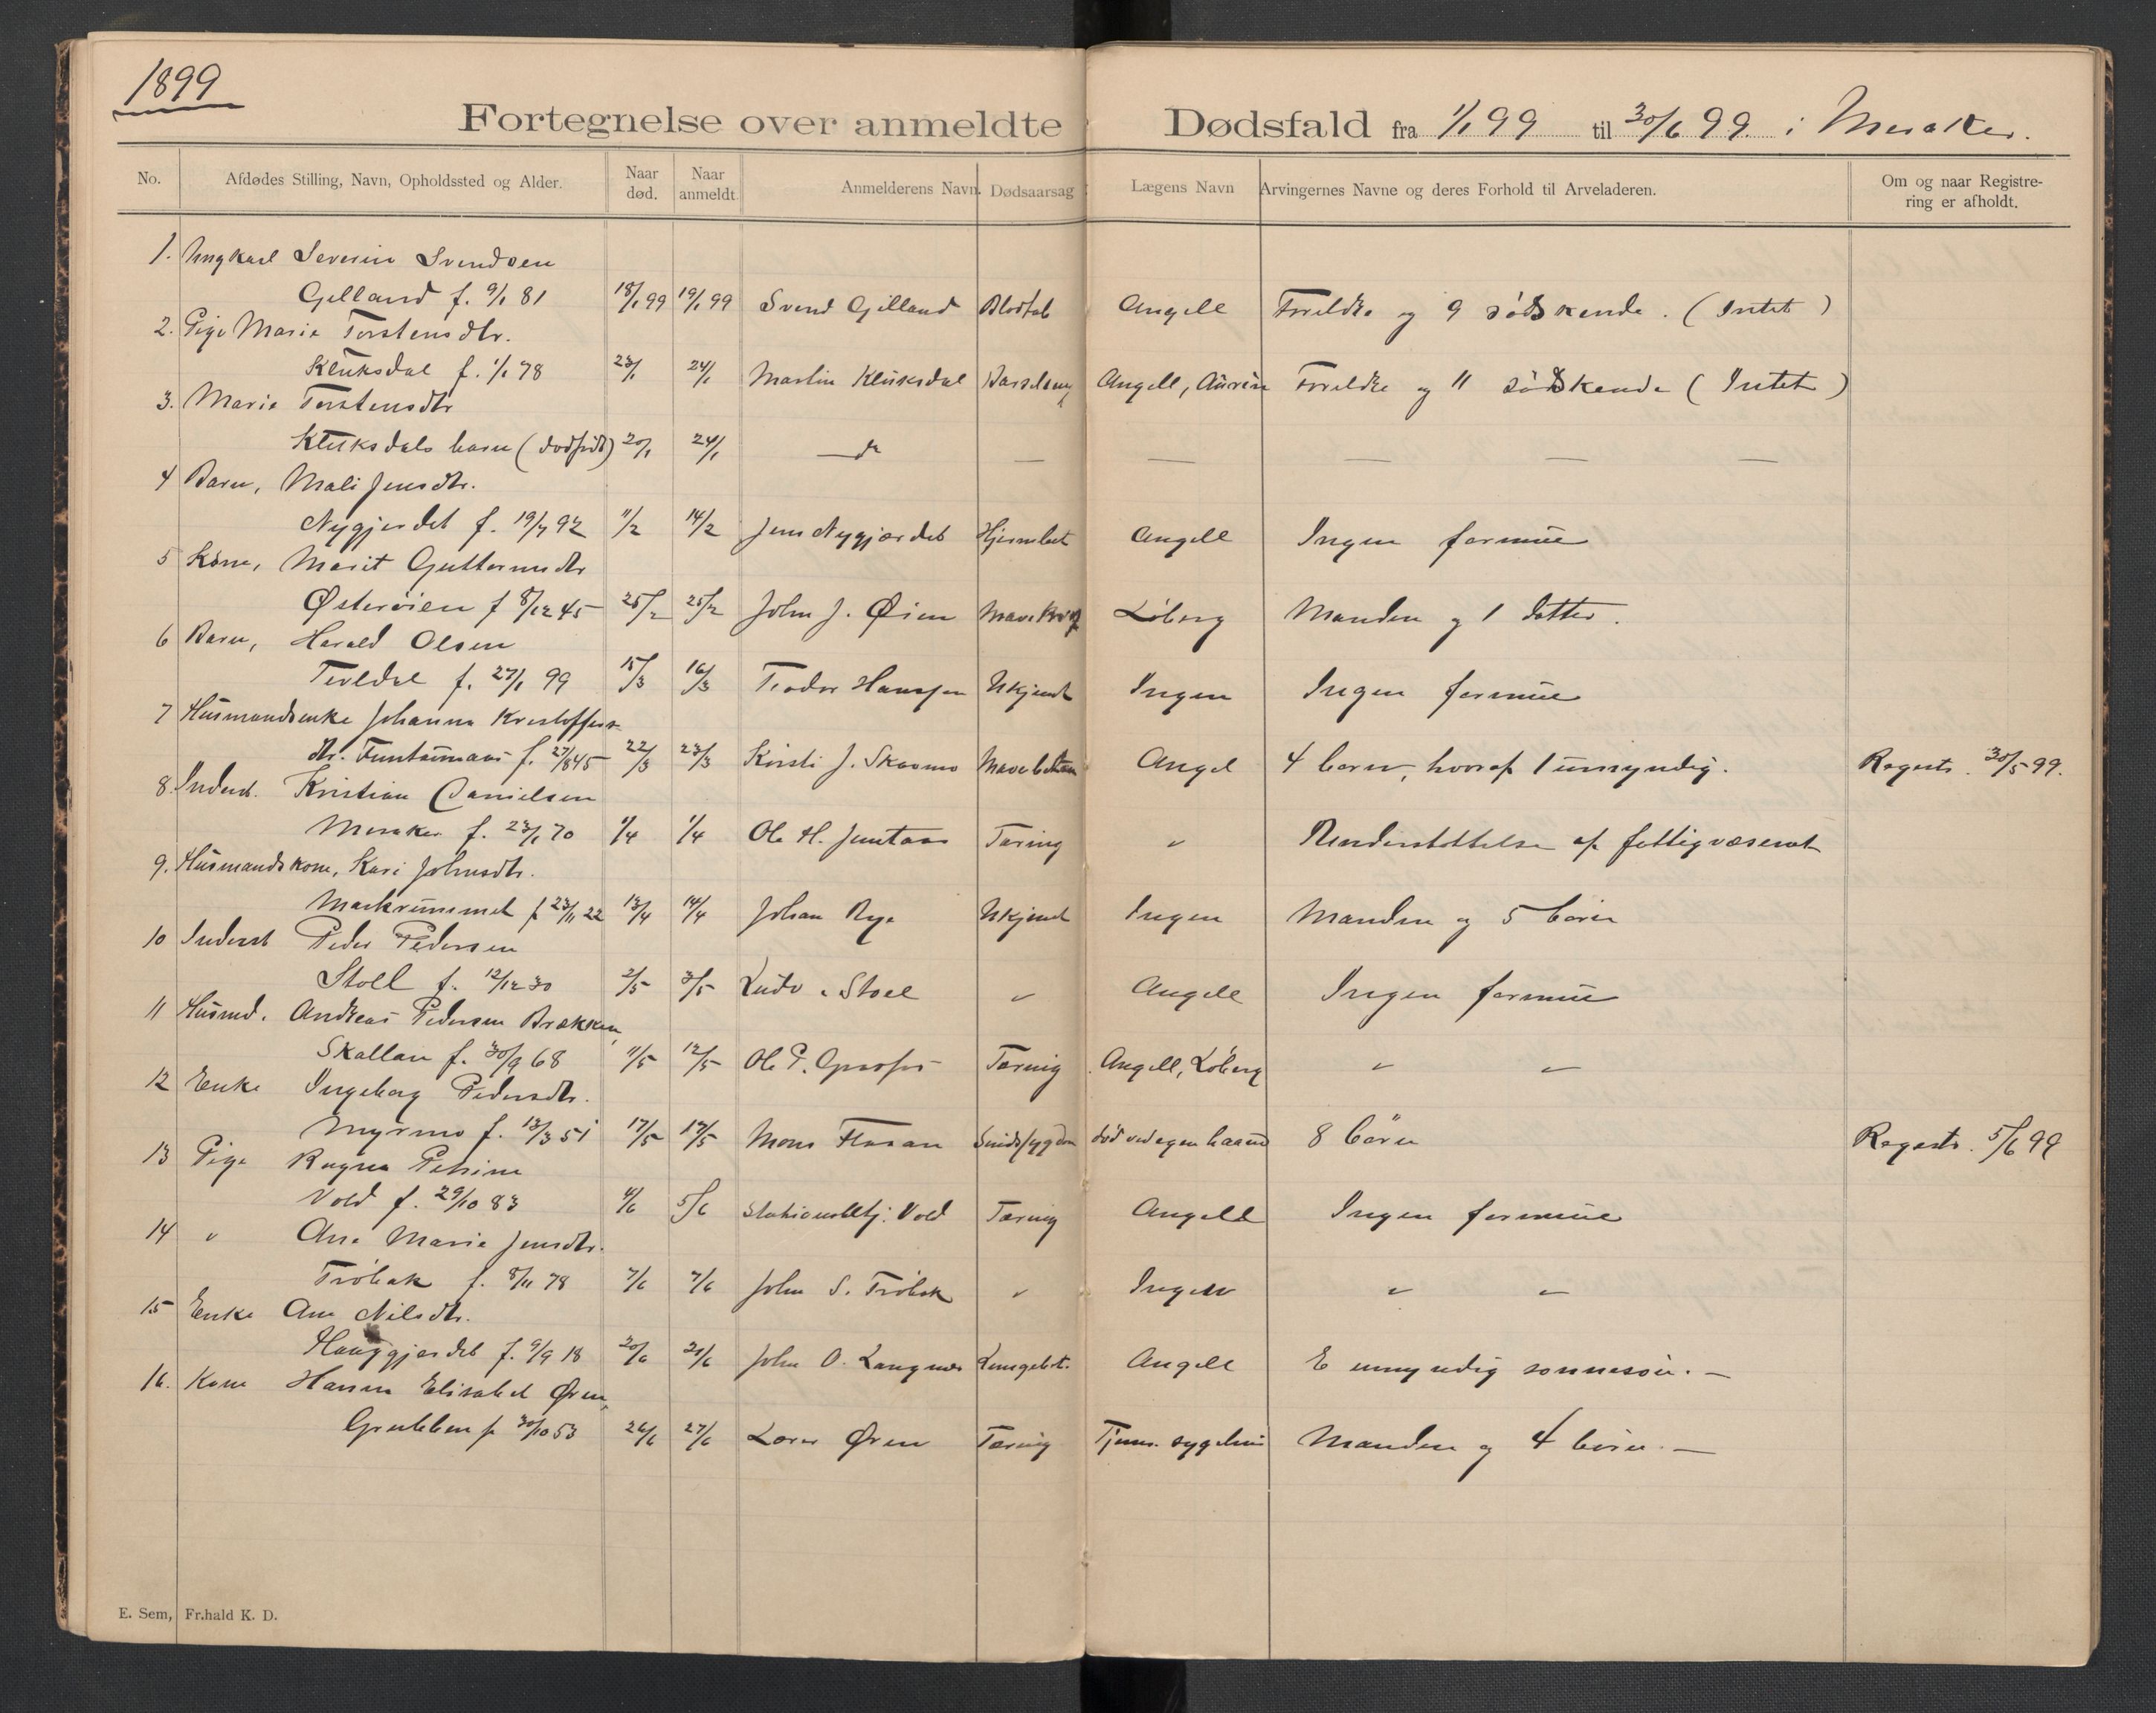 1899
Fortegnelse over anmeldte Dødsfald fra 1/1 99 til 30/6 99 i Meraker.
No. Afdødes Stilling, Navn, Opholdssted og Alder. Naar død. Naar anmeldt. Anmelderens Navn. Dødsaarsag Lægens Navn Arvingernes Navne og deres Forhold til Arveladeren. Om og naar Registrering er afholdt.
1. Ungkarl Severin Svendsen
Gilland f. 9/1 81 18/1 99 19/1 99 Svend Gilland Blodtab Angell Foreldre og 9 sødskende. (Intet)
2. Pige Marie Torstensdtr.
Kluksdal f. 1/1 78 23/1 24/1 Martin Kluksdal Angell, Foreldre og 11 sødskende (Intet)
3. Marie Torstensdtr
Kluksdals barn (dødfødt) 20/1 24/1 — do — — — — —
4 Barn, Mali Jensdtr.
Nygjerdet f. 19/7 92 11/2 14/2 Jens Nygjærdet Angell Ingen formue
5 Kone, Marit Guttormsdtr
Østerøien f 8/12 45 25/2 25/2 John J. Øien Løberg Manden og 1 datter.
6 Barn, Harald Olsen
Teveldal f. 27/1 99 15/3 16/3 Teodor Hanssen Ukjendt Ingen Ingen formue
7 Husmandsenke Johanna Kristoffers-
dtr. Funtaunaas f. 27/8 45 22/3 23/3 Kirsti J. Skaomo Angel 4 barn, hvoraf 1 umyndig. Regestr. 30/5 99.
8. Inderst. Kristian Danielsen
Meraker f. 23/1 70 1/4 1/4 Ole H. Tæring " understøttelse af fattigvæsenet
9. Husmandskone, Kari Johnsdtr.
f 23/11 22 13/4 14/4 Johan Rye Ukjendt Ingen Manden og 5 børn
10 Inderst Peder Pedersen
Stoll f. 12/12 30 2/5 3/5 " Angell Ingen formue
11 Husmd. Andreas Pedersen Brækken,
Skallan f. 30/9 68 11/5 12/5 Ole P. Tæring Angell, Løberg " "
12 Enke Ingeborg Pedersdtr.
Myrmo f. 13/3 51 17/5 17/5 Mons Sindssygdom død ved egen haand 8 børn Regestr. 5/6 99
13 Pige Ragna Petrine
Vold f. 29/10 83 4/6 5/6 Stationsbetj. Vold Tæring Angell Ingen formue
14 " Ane Marie Jensdtr.
Trøbak f. 8/11 78 7/6 7/6 John S. Trøbak " Ingen " "
15 Enke Ane Nilsdtr.
Hauggjerdet f. 9/9 18 20/6 21/6 John O. Langnes Lungebet. Angell E umyndig sønnesøn. —
16. Kone Hanna Elisabet Øren,
Grubben f 30/10 53 26/6 27/6 Øren Tæring Manden og 4 børn. —
E. Sem, Fr.hald K. D.